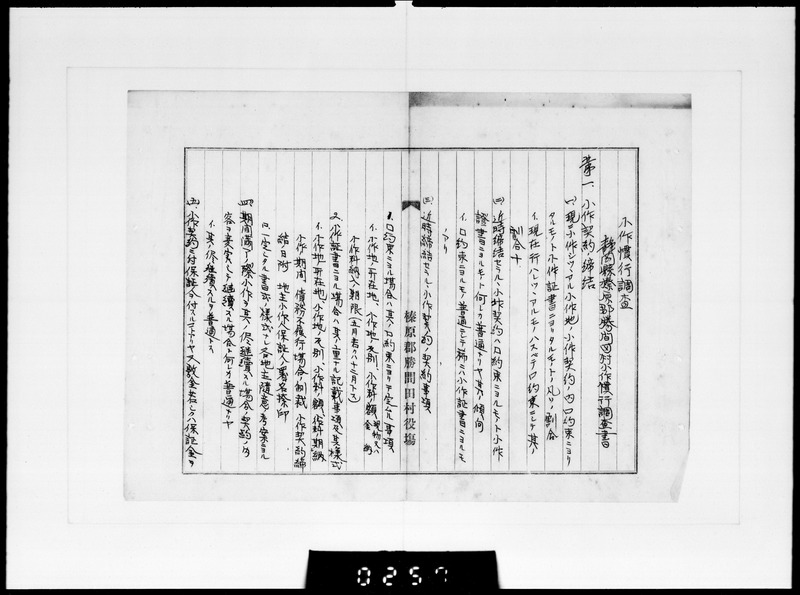 小作慣行調査
静岡縣榛原郡勝間田村小作慣行調査書
第一、小作契約ノ締結
(一)現ニ小作シツヽアル小作地ノ小作契約ノ内口約束ニヨリ
タルモノト小作証書ニヨリタルモノトノ凡ソノ割合
イ、現在行ハレツヽアルモノハスベテ口約束ニシテ其ノ
割合十
(二)近時締結セラルヽ小作契約ハ口約束ニヨルモノト小作
證書ニヨルモノト何レガ普通ナリヤ其ノ傾向
イ、口約束ニヨルモノ普通ニシテ稀ニハ小作証書ニヨルモノ
アリ
(三)近時締結セラルヽ小作契約ノ契約事項
榛原郡勝間田村役場
1、口約束ニヨル場合ハ其ノ口約束ニヨリテ定ムル事項
イ、小作地ノ所在地、小作地ノ反別、小作料ノ額
小作料納入期限(五月若クハ十二月トス)
2、小作証書ニヨル場合ハ其ノ重ナル記載事項及其ノ様式
イ、小作地ノ所在地、小作地ノ反別、小作料ノ額、小作料期限
小作期間、債務不履行ノ場合ノ制裁、小作契約締
結ノ日附、地主小作人保証人ノ署名捺印
ロ、一定シタル書式様式ナシ各地主随意ノ考案ニヨル
(四)期間満了ノ際小作ヲ其ノ侭継續スル場合ハ契約ノ内
容ヲ変更シテ継續スル場合ト何レガ普通ナリヤ
イ、其ノ侭継續スルヲ普通トス
(五)小作契約ニ付保証人ヲ付スルコトアリヤ又敷金若シクハ保証金ヲ
0257